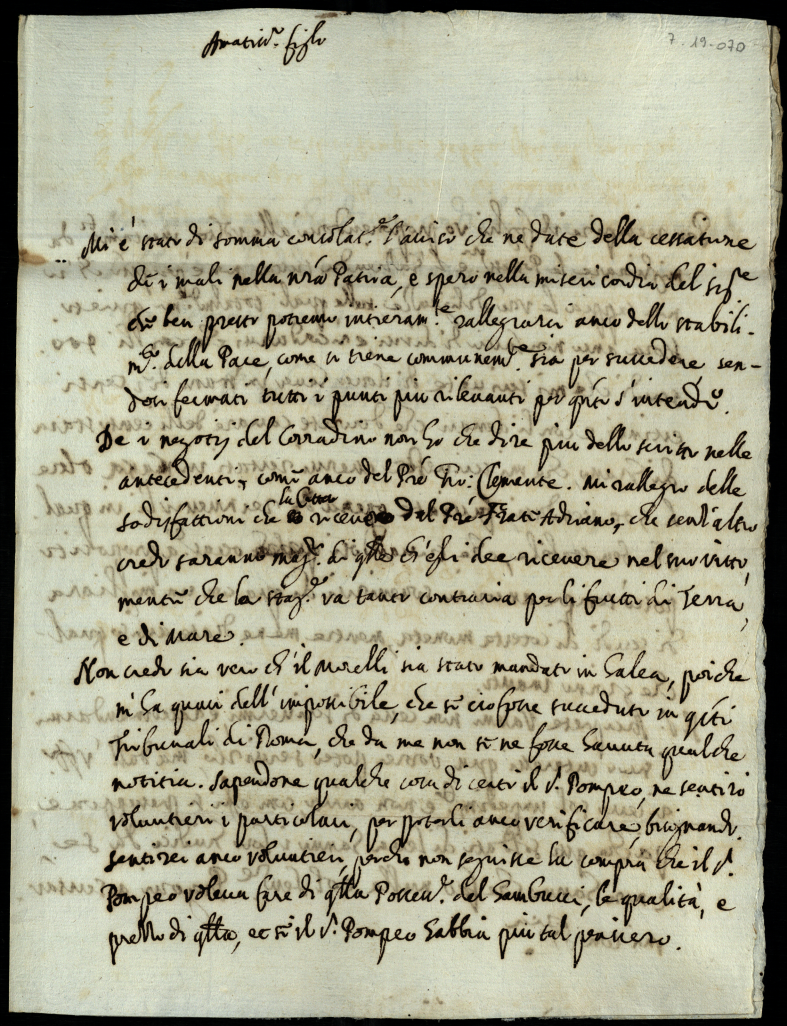 Amatiss.º figlo
7-19-070
Mi é stato di somma consolat.ne l'aviso che ne date della cessatione
de i mali nella nrã Patria, e spero nella misericordia del sig.re
che ben presto potremo intieram.te rallegrarci anco dello stabili-
m.to della Pace, come si tiene communem.te sia per succedere sen-
dosi fermati tutti i punti piu rilevanti per q̃to s'intende.
De i negotij del Corradino non ho che dire piu dello scritto nelle
antecedenti, come anco del Prẽ Fr: Clemente. Mi rallegro delle
la Casa
sodisfattioni che riceve dal Prẽ Frate Adriano, che senz'altro
credo saranno mag.ri di q̃lle ch'egli dee ricevere nel suo vitto,
mentre che la stag.ne va tanto contraria per li frutti di Terra,
e di Mare.
Non credo sia vero ch'il Morelli sia stato mandato in Galea, poiche
m'ha quasi dell'impossibile, che se ciò fosse succeduto in q̃sti
Tribunali di Roma, che da me non se ne fosse havuta qualche
notitia. Sapendone qualche cosa di certo il s.r Pompeo, ne sentirò
volontieri i particolari, per poterli anco verificare, bisognando.
Sentirei anco volontieri, perche non seguisse la compra che il s.r
Pompeo voleva fare di q̃lla Possess.ne del Gambucci, la qualità, e
prezzo di q̃lla, et se il s.r Pompeo habbia piu tal pensiero.